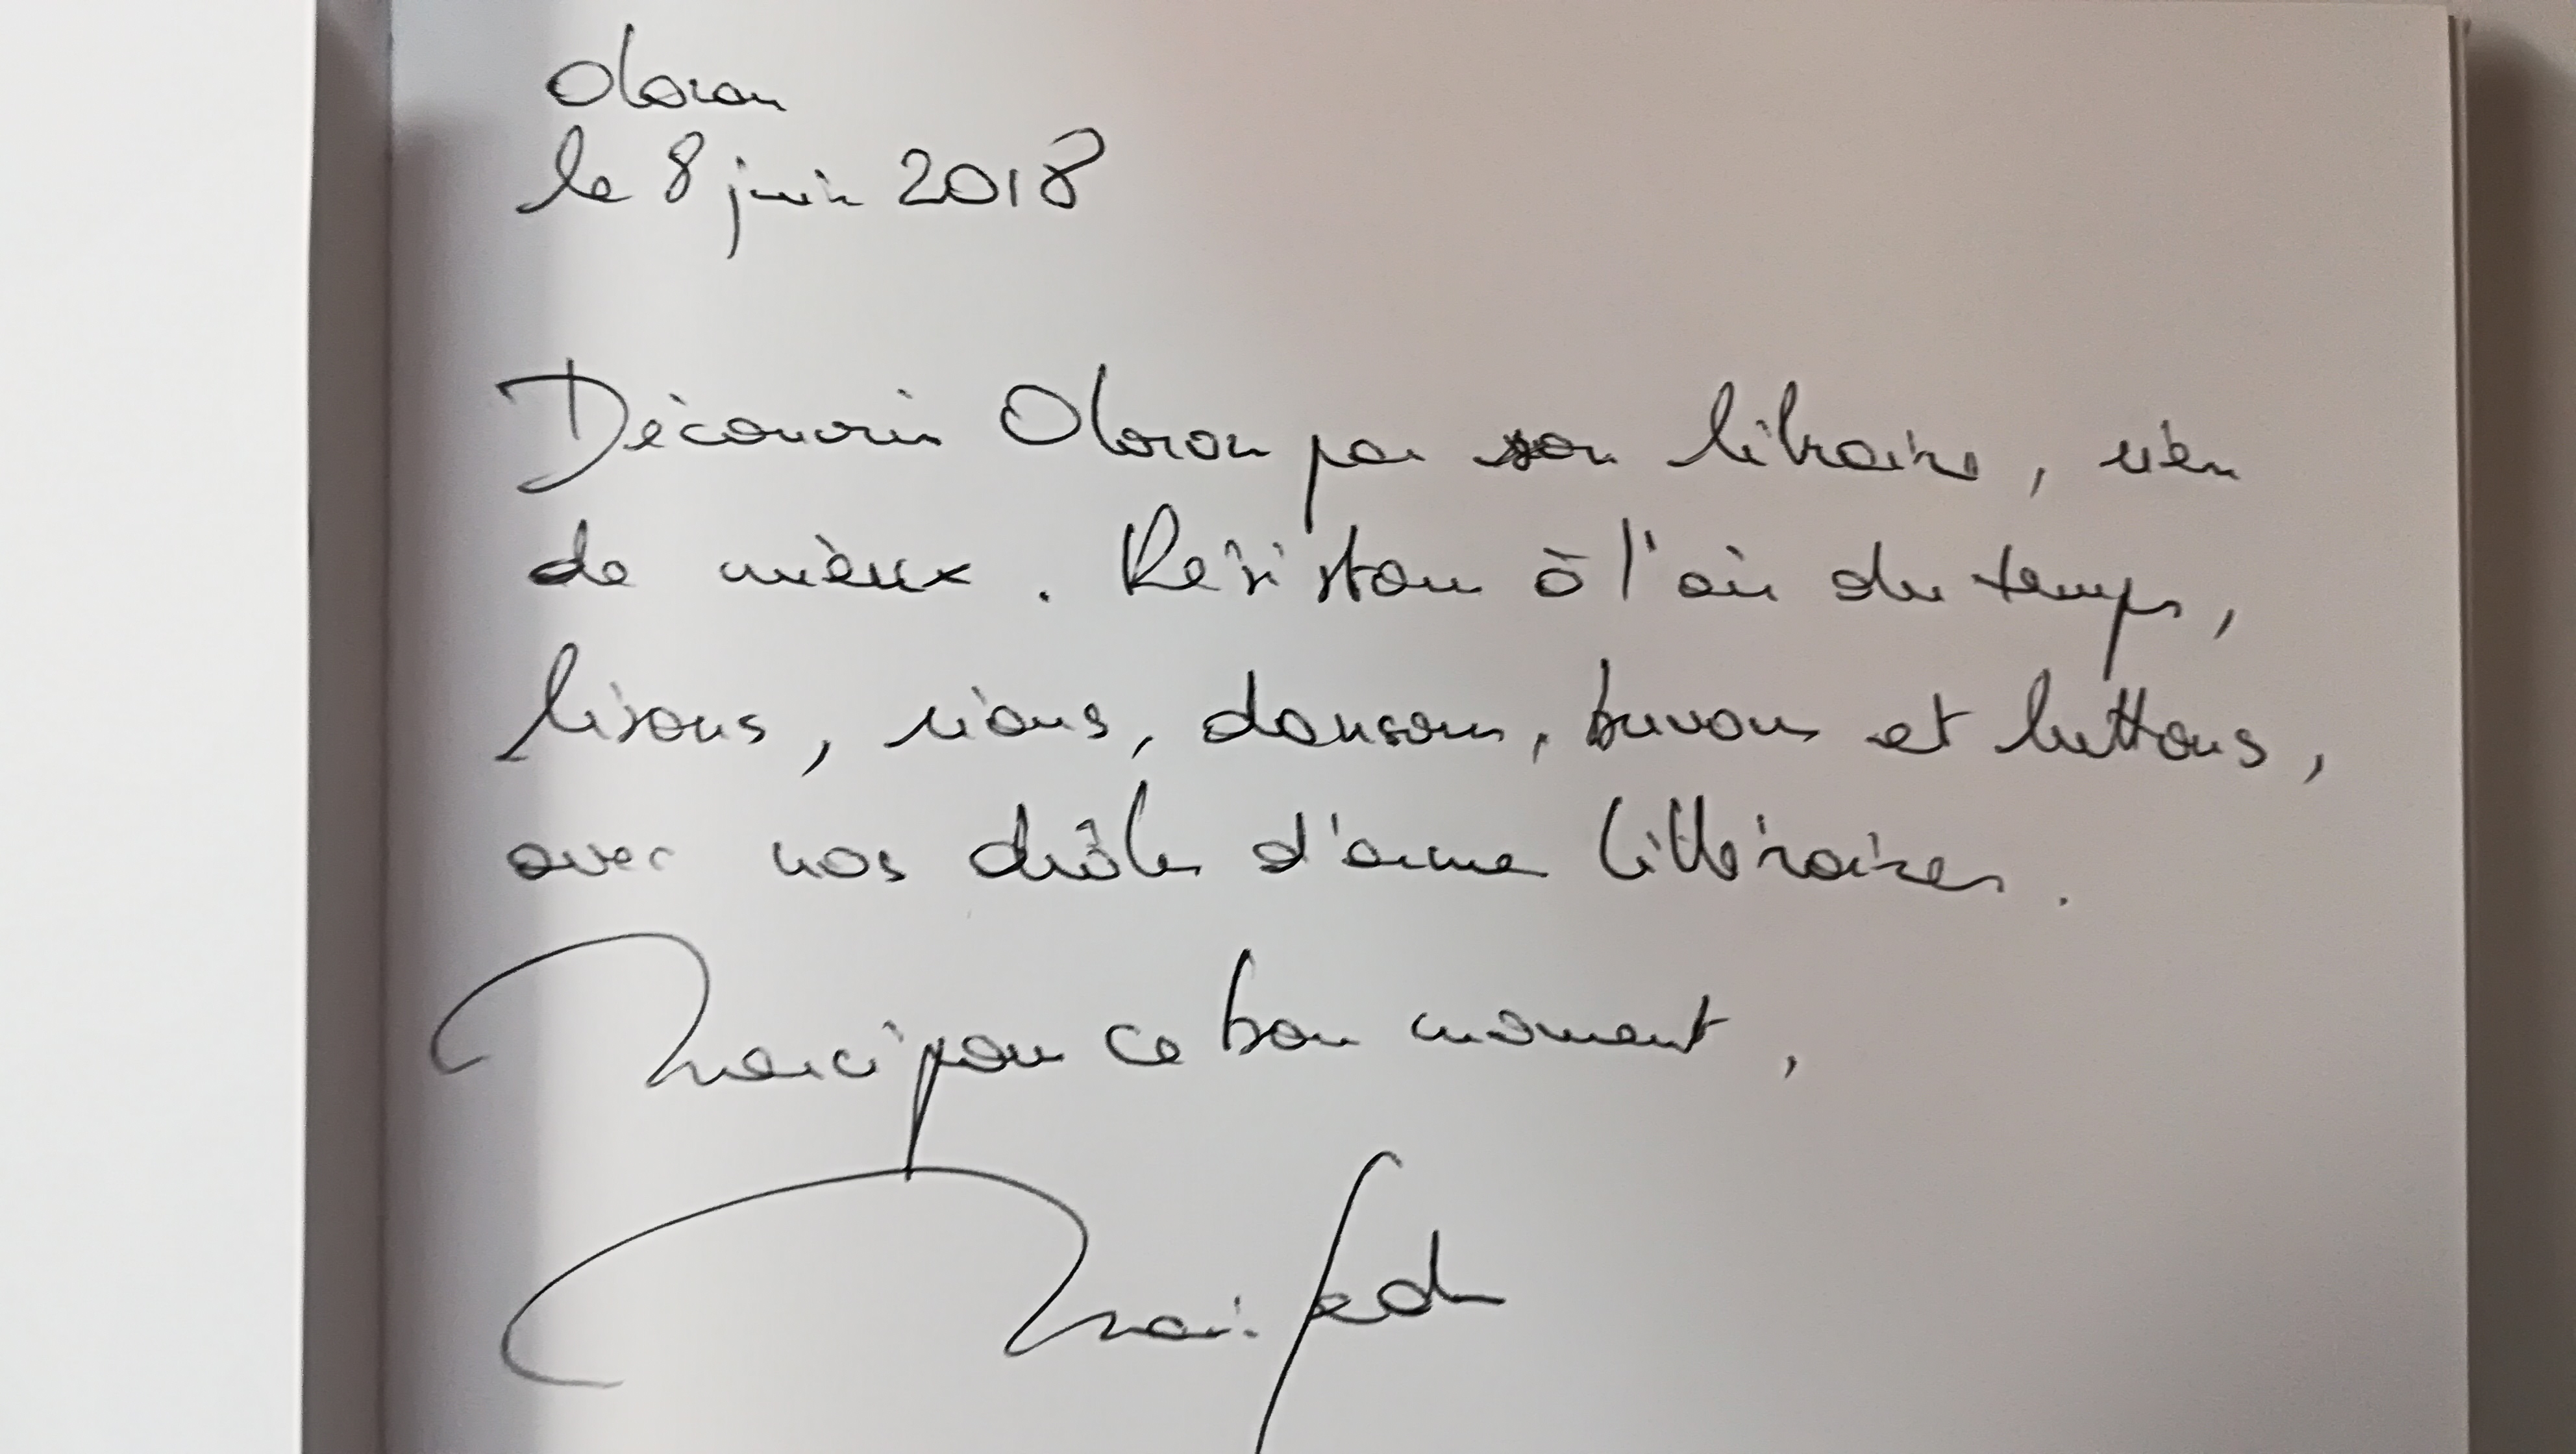 Oloron
le 8 juin 2018
Découvrir Oloron par son libraire, rien
de mieux. Résistons à l'air du temps,
lisons, rions, dansons, buvons et luttons,
avec nos drôles d'arme littéraires.
Merci pour ce bon moment,